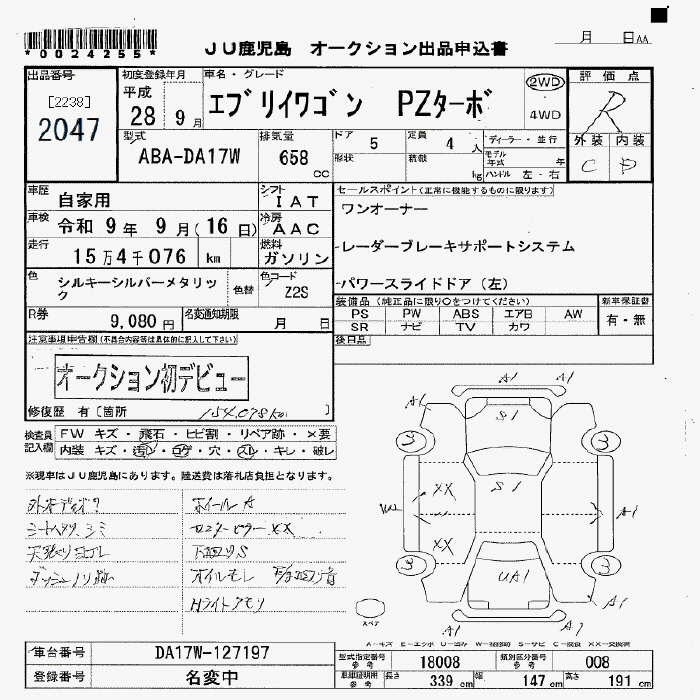 *0024255*
JU鹿児島 オークション出品申込書
月 日AA
出品番号
[2238]
2047
初度登録年月
平成
28 9月
車名・グレード
エブリイワゴン PZターボ
2WD
4WD
評価点
R
外装 内装
C D
型式
ABA-DA17W
排気量
658
cc
ドア 5
定員 4 人
形状
積載 kg
ディーラー・並行
モデル年式 年
ハンドル 左・右
車歴
自家用
シフト
IAT
車検
令和 9年 9月(16日)
冷房
AAC
走行
15万4千076 km
燃料
ガソリン
色
シルキーシルバーメタリック
色替
色コード
Z2S
R券
9,080円
名変通知期限
月 日
セールスポイント(正常に機能するものに限ります)
ワンオーナー
レーダーブレーキサポートシステム
パワースライドドア(左)
装備品(純正品に限り○をつけてください)
PS PW ABS エアB AW
SR ナビ TV カワ
新車保証書
有・無
後日品
注意事項申告欄(不具合内容等は具体的に記入して下さい)
オークション初デビュー
修復歴 有〔箇所 154078km 〕
検査員記入欄
FW キズ・飛石・ヒビ割・リペア跡・×要
内装 キズ・汚レ・コゲ・穴・スレ・キレ・破レ
※現車はJU鹿児島にあります。陸送費は落札店負担となります。
ホイールA
シートヘタリ、シミ
天張りヨゴレ
ダッシュノリ跡
下回りS
オイルモレ
Hライトクモリ
A1 A1
A1
S1
3 3
XX
S1
W3
A1
XX
3 3
UA1
A1
A1 A1
スペア
車台番号
DA17W-127197
登録番号
名変中
型式指定番号
参考
18008
類別区分番号
参考
008
車庫証明用
参考
長さ 339cm
幅 147cm
高さ 191cm